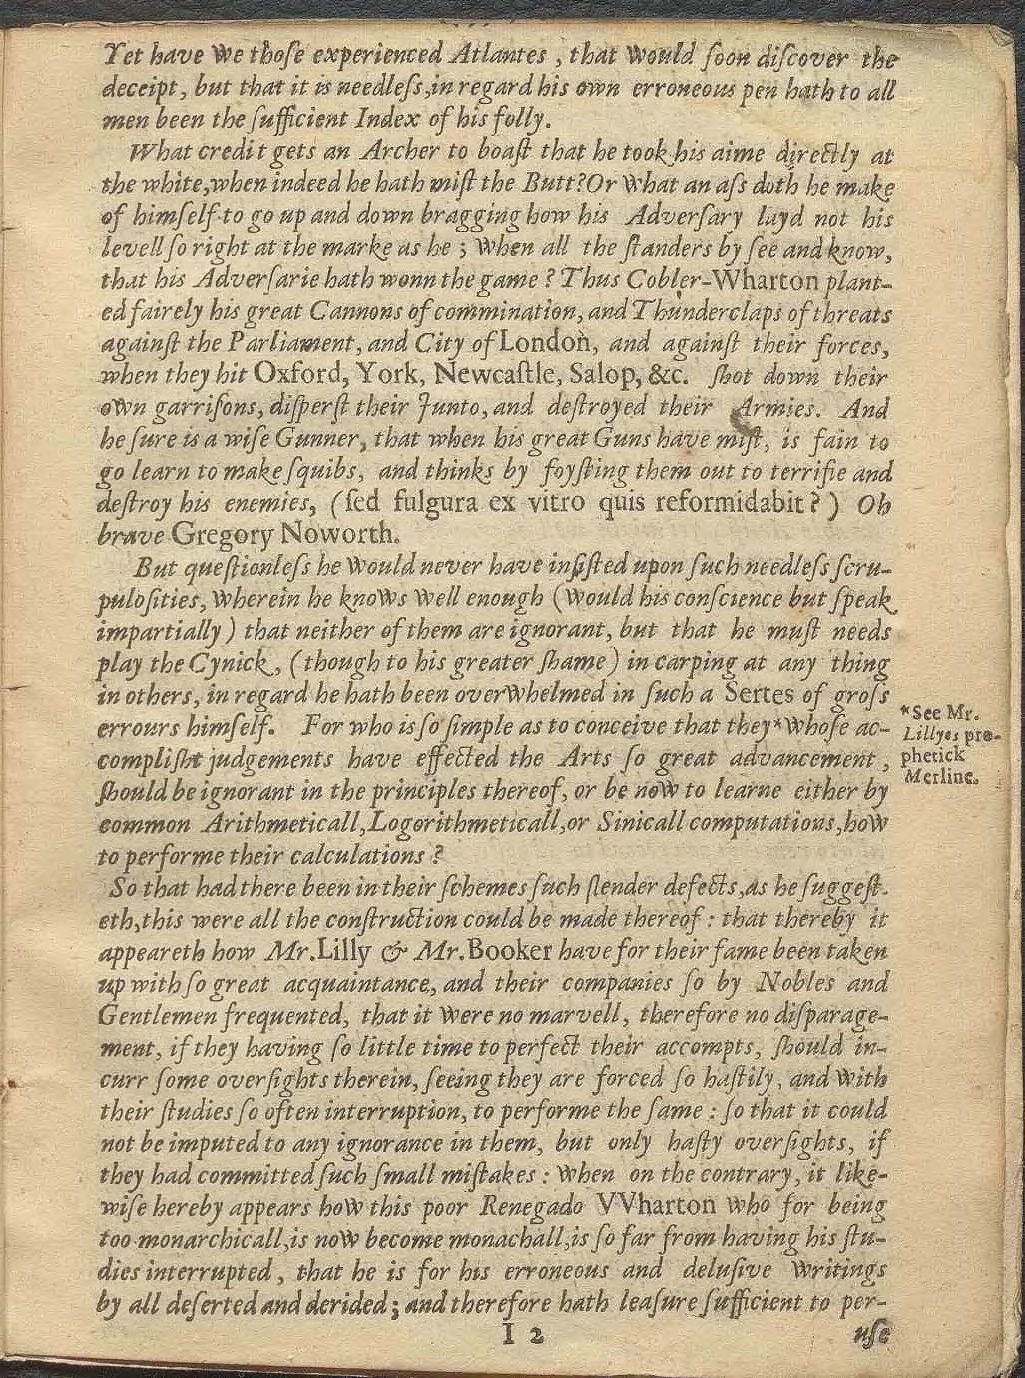 Yet have we thoſe experienced Atlantes, that would ſoon diſcover the
deceipt, but that it is needleſs, in regard his own erroneous pen hath to all
men been the ſufficient Index of his folly.
What credit gets an Archer to boaſt that he took his aime directly at
the white, when indeed he hath miſt the Butt? Or what an aſs doth he make
of himſelf to go up and down bragging how his Adverſary layd not his
levell ſo right at the marke as he; when all the ſtanders by ſee and know,
that his Adverſarie hath wonn the game? Thus Cobler-Wharton plant-
ed fairely his great Cannons of commination, and Thunderclaps of threats
againſt the Parliament, and City of London, and againſt their forces,
when they hit Oxford, York, Newcaſtle, Salop, &c. ſhot down their
own garriſons, diſperſt their Junto, and deſtroyed their Armies. And
he ſure is a wiſe Gunner, that when his great Guns have miſt, is fain to
go learn to make ſquibs, and thinks by foyſting them out to terrifie and
deſtroy his enemies, (ſed fulgura ex vitro quis reformidabit?) Oh
brave Gregory Noworth.
But queſtionleſs he would never have inſiſted upon ſuch needleſs ſcru-
puloſities, wherein he knows well enough (would his conſcience but ſpeak
impartially) that neither of them are ignorant, but that he muſt needs
play the Cynick, (though to his greater ſhame) in carping at any thing
in others, in regard he hath been overwhelmed in ſuch a Sertes of groſs
errours himſelf. For who is ſo ſimple as to conceive that they * whoſe ac-
compliſht judgements have effected the Arts ſo great advancement,
ſhould be ignorant in the principles thereof, or be now to learne either by
common Arithmeticall, Logorithmeticall, or Sinicall computations, how
to performe their calculations?
*See Mr.
Lillyes pro-
phetick
Merline.
So that had there been in their ſchemes ſuch ſlender defects, as he ſuggeſt-
eth, this were all the conſtruction could be made thereof: that thereby it
appeareth how Mr. Lilly & Mr. Booker have for their fame been taken
up with ſo great acquaintance, and their companies ſo by Nobles and
Gentlemen frequented, that it were no marvell, therefore no diſparage-
ment, if they having ſo little time to perfect their accompts, ſhould in-
curr ſome overſights therein, ſeeing they are forced ſo haſtily, and with
their ſtudies ſo often interruption, to performe the ſame: ſo that it could
not be imputed to any ignorance in them, but only haſty overſights, if
they had committed ſuch ſmall miſtakes: when on the contrary, it like-
wiſe hereby appears how this poor Renegado VVharton who for being
too monarchicall, is now become monachall, is ſo far from having his ſtu-
dies interrupted, that he is for his erroneous and deluſive writings
by all deſerted and derided; and therefore hath leaſure ſufficient to per-
I 2
uſe